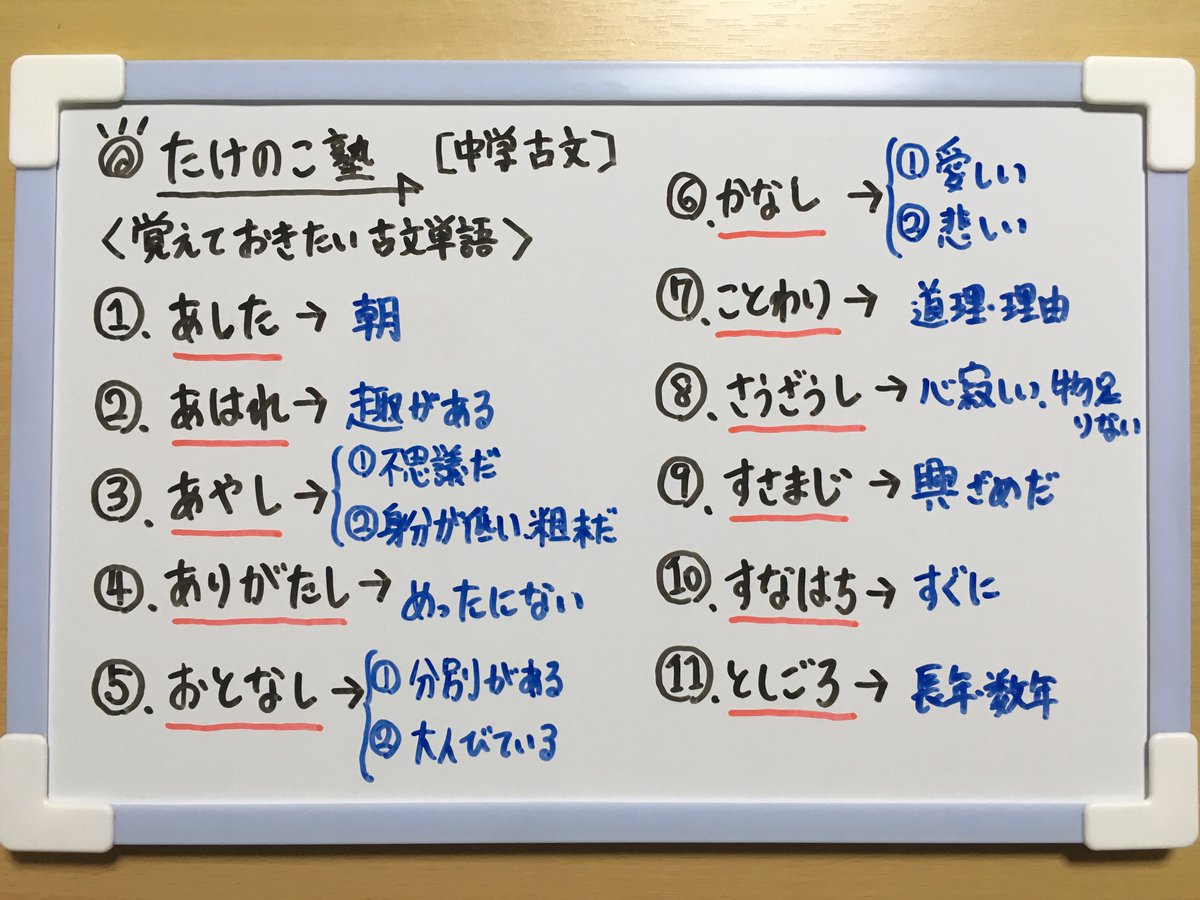 たけのこ塾 [中学古文]
〈覚えておきたい古文単語〉
①. あした → 朝
②. あはれ → 趣がある
③. あやし → ①不思議だ
②身分が低い、粗末だ
④. ありがたし → めったにない
⑤. おとなし → ①分別がある
②大人びている
⑥. かなし → ①愛しい
②悲しい
⑦. ことわり → 道理・理由
⑧. さうざうし → 心寂しい、物足
りない
⑨. すさまじ → 興ざめだ
⑩. すなはち → すぐに
⑪. としごろ → 長年・数年